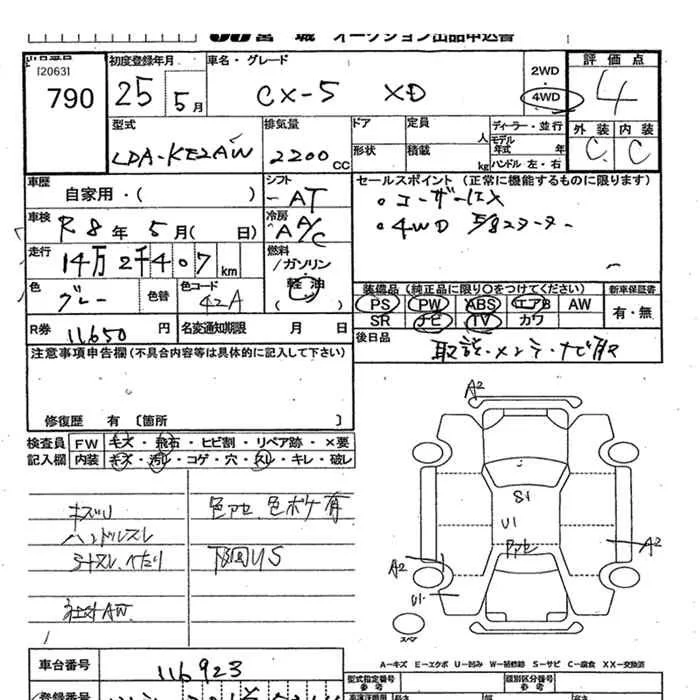 宮 城 オークション出品申込書
[2063]
初度登録年月
車名・グレード
評価点
790
25 5月
CX-5 XD
2WD
・
4WD
4
型式
排気量
ドア
定員
人
ディーラー・並行
外装
内装
LDA-KE2AW
2200cc
形状
積載
kg
モデル年式
年
ハンドル 左・右
C
C
車歴
自家用・( )
シフト
AT
セールスポイント (正常に機能するものに限ります)
・ユーザー
・4WD
車検
R8年 5月( 日)
冷房
AA/C
走行
14万2千407km
燃料
/ガソリン
軽油
( )
色
グレー
色替
色コード
42A
装備品(純正品に限り○をつけてください)
新車保証書
PS PW ABS エアB AW
SR ナビ TV カワ
有・無
R券
11650円
名変通知期限
月 日
後日品
取説・メンテ・ナビ
注意事項申告欄(不具合内容等は具体的に記入して下さい)
修復歴 有 〔箇所 〕
検査員
記入欄
FW キズ・飛石・ヒビ割・リペア跡・×要
内装 キズ・汚レ・コゲ・穴・スレ・キレ・破レ
キズU
ハンドルスレ
シートスレ、へたり
社外AW
色アセ、色ボケ有
下回US
A2
S1
U1
A2
A2
U1
スペア
A-キズ E-エクボ U-凹み W-補修跡 S-サビ C-腐食 XX-交換済
車台番号
116923
型式指定番号
類別区分番号
登録番号